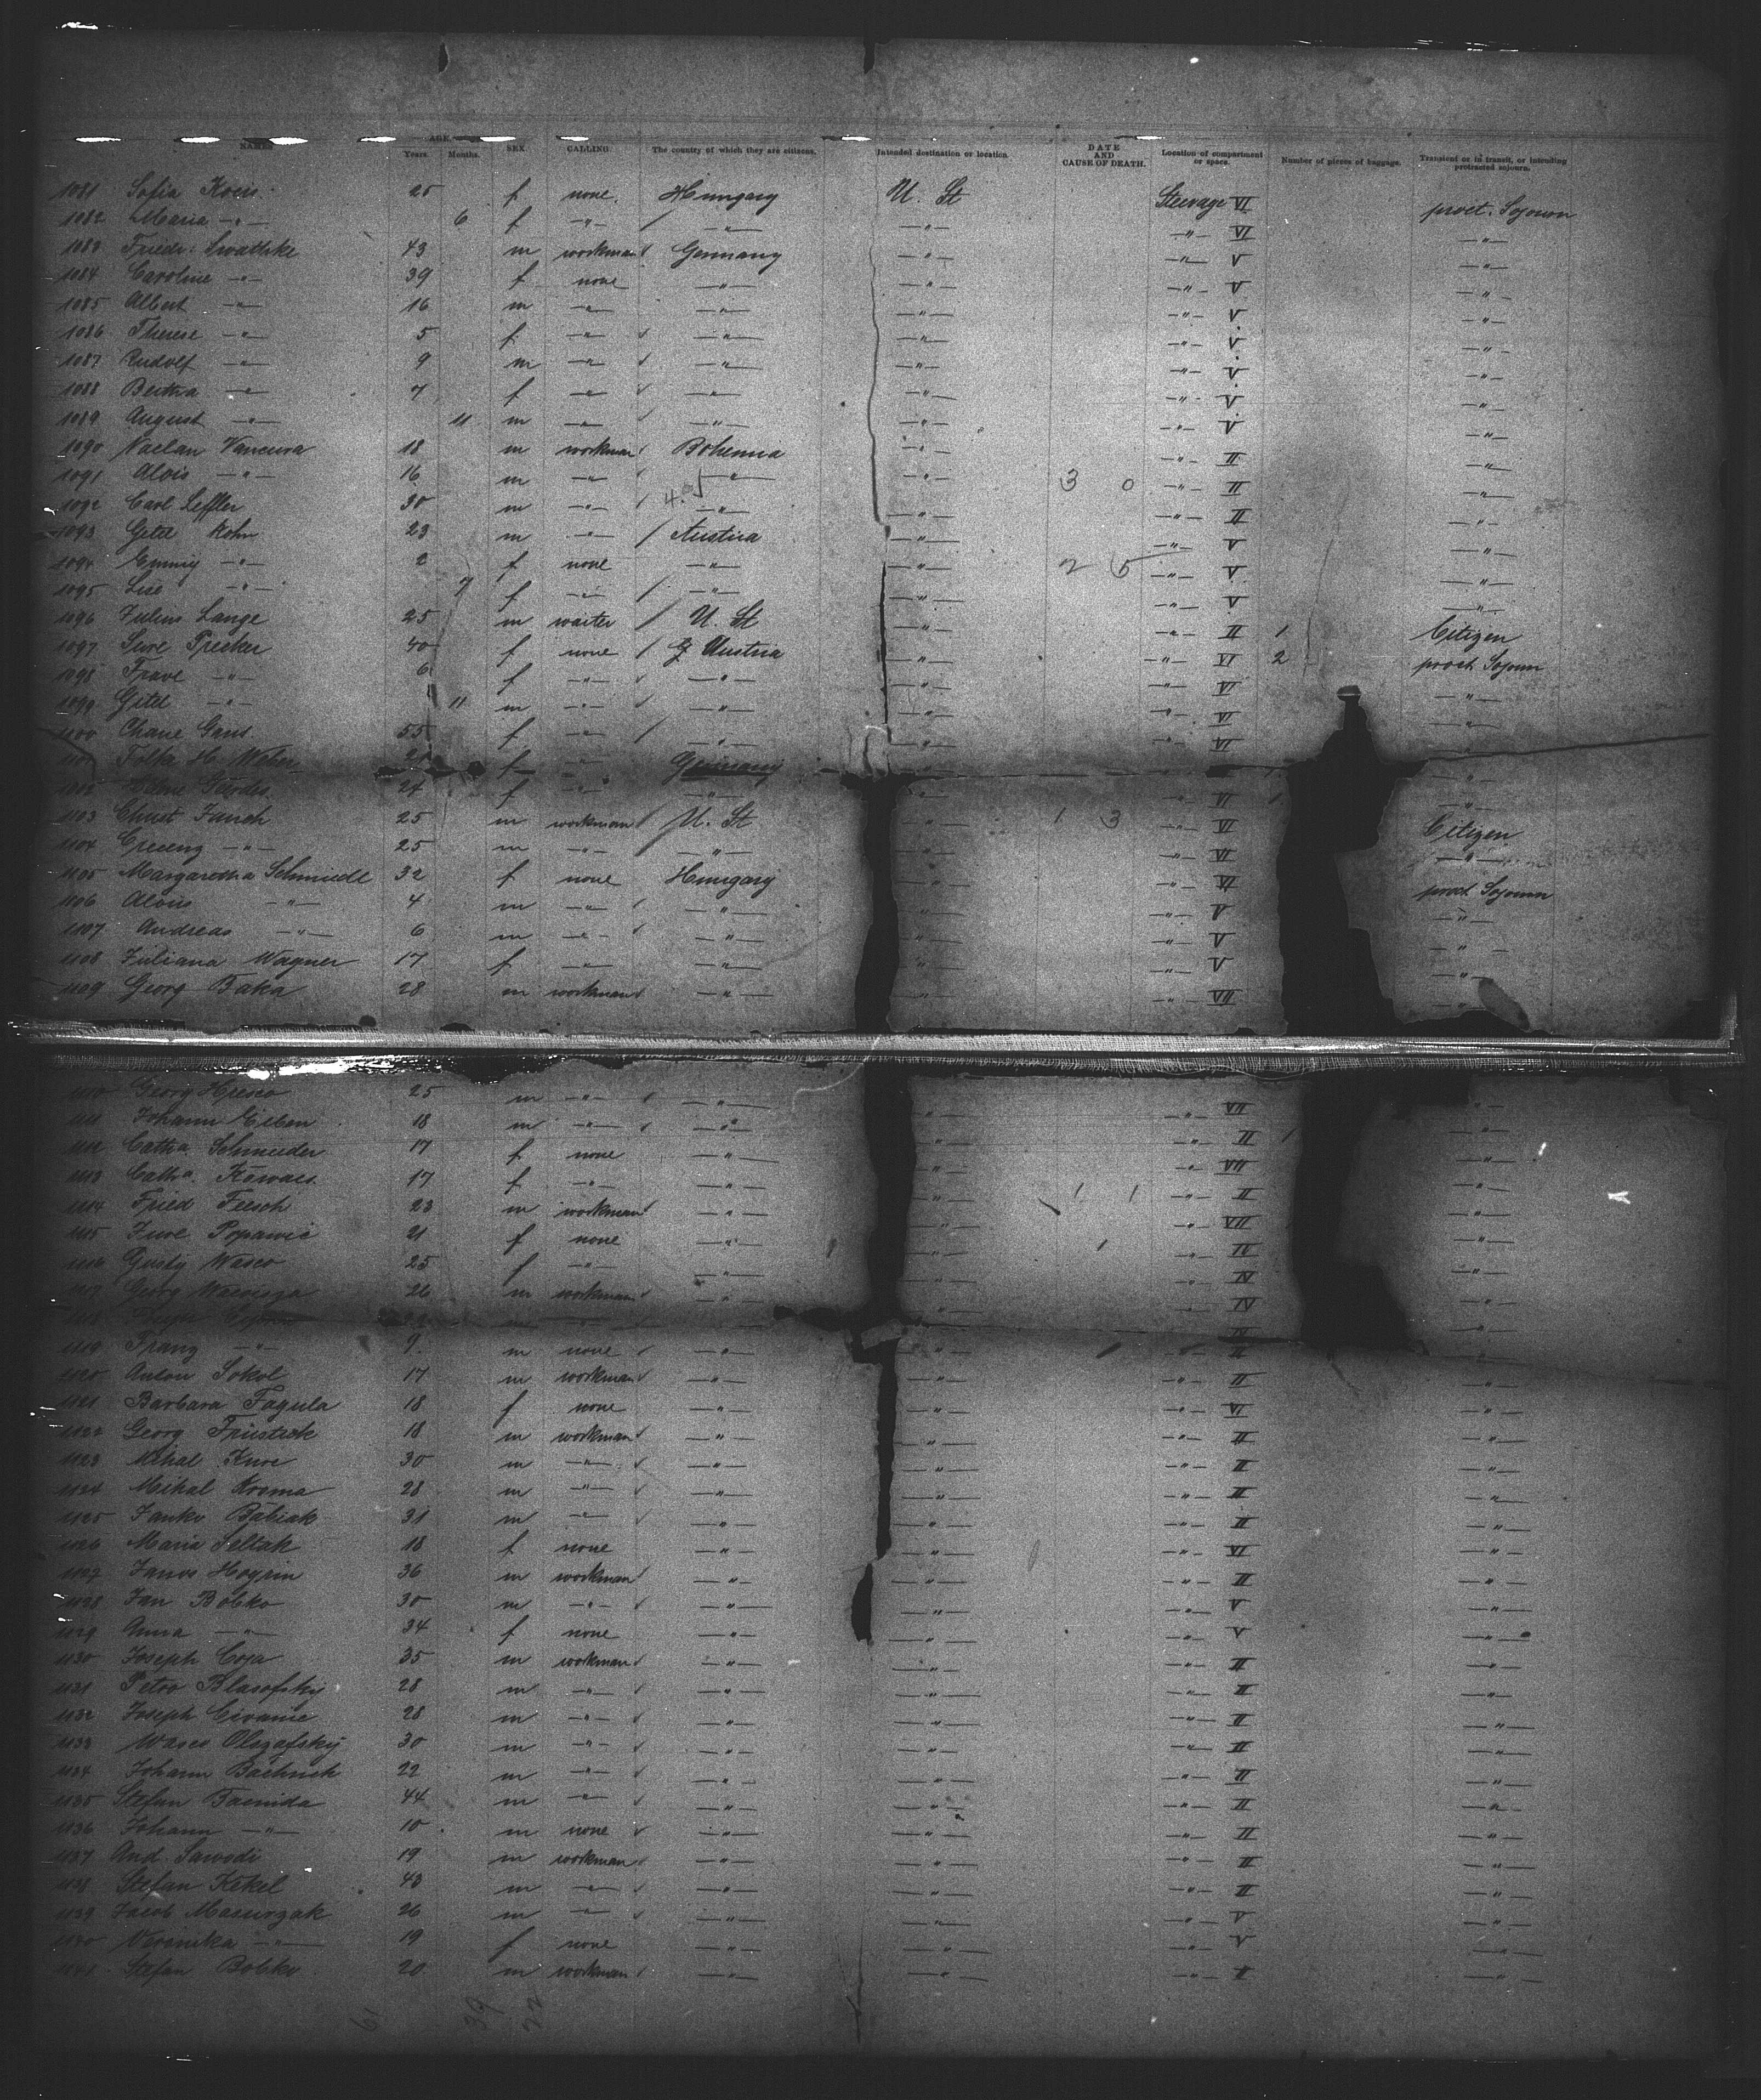 NAMES AGE. Years. Months. SEX. CALLING. The country of which they are citizens. Intended destination or location. DATE AND CAUSE OF DEATH. Location of compartment or space. Number of pieces of baggage. Transient or in transit, or intending protracted sojourn.
1081 Sofia 25 f none. Hungary U. St Steerage VI proct. Sojourn
1082 Maria -"- 6 f -"- -"- -"- -"- VI -"-
1083 Friedr. Swatzke 43 m workman Germany -"- -"- V -"-
1084 Caroline -"- 39 f none -"- -"- -"- V -"-
1085 Albert -"- 16 m -"- -"- -"- -"- V -"-
1086 Therese -"- 5 f -"- -"- -"- -"- V -"-
1087 Rudolf -"- 9 m -"- -"- -"- -"- V -"-
1088 Bertha -"- 7 f -"- -"- -"- -"- V -"-
1089 August -"- 11 m -"- -"- -"- -"- V -"-
1090 Vaclav Vancura 18 m workman Bohemia -"- -"- II -"-
1091 Alois -"- 16 m -"- -"- -"- 3 0 -"- II -"-
1092 Carl Leffler 30 m -"- -"- -"- -"- II -"-
1093 Gitel Kohn 23 m -"- Austria -"- -"- V -"-
1094 Emmy -"- 2 f none -"- -"- 2 5 -"- V -"-
1095 Lise -"- 7 f -"- -"- -"- -"- V -"-
1096 Julius Lange 25 m waiter U. St -"- -"- II 1 Citizen
1097 Sure Precker 40 f none Austria -"- -"- VI 2 proct Sojourn
1098 Frave -"- 6 f -"- -"- -"- -"- VI -"-
1099 Gitel -"- 11 m -"- -"- -"- -"- VI -"-
1100 Chane Gans 55 f -"- -"- -"- -"- VI -"-
1101 Folka H. Weber f -"- Germany
1102 Gerdes 24 f -"- -"- -"- -"- VI 1 -"-
1103 Christ Jauch 25 m workman U. St -"- 1 3 -"- VI Citizen
1104 Crecenz -"- 25 m -"- -"- -"- -"- VI -"-
1105 Margaretha Schmiedl 32 f none Hungary -"- VI proct Sojourn
1106 Alois -"- 4 m -"- -"- -"- -"- V -"-
1107 Andreas -"- 6 m -"- -"- -"- -"- V -"-
1108 Juliana Wagner 17 f -"- -"- -"- -"- V -"-
1109 Georg Baka 28 m workman -"- -"- -"- VII -"-
1110 Georg Hresco 25 m -"- -"- -"- -"- VII -"-
1111 Johann Eiben 18 m -"- -"- -"- -"- II 1 -"-
1112 Catha Schmieder 17 f none -"- -"- -"- VII -"-
1113 Catha. Kowacs 17 f -"- -"- -"- 1 1 -"- II -"-
1114 Fried Fresch 23 m workman -"- -"- -"- VII -"-
1115 Jure Popawic 21 f none -"- -"- -"- IV -"-
1116 Gusty Wasco 25 f -"- -"- -"- -"- IV -"-
1117 Georg 26 m workman -"- -"- -"- IV -"-
1118
1119 Franz -"- 9 m none -"- -"- -"- II
1120 Anton Sokol 17 m workman -"- -"- -"- II -"-
1121 Barbara Fagula 18 f none -"- -"- -"- VI -"-
1122 Georg 18 m workman -"- -"- -"- II -"-
1123 Mihal Kure 30 m -"- -"- -"- -"- II -"-
1124 Mihal Kroma 28 m -"- -"- -"- -"- II -"-
1125 Janko Babiak 31 m -"- -"- -"- -"- II -"-
1126 Maria Seltak 18 f none -"- -"- -"- VI -"-
1127 Janos Hogrin 36 m workman -"- -"- -"- II -"-
1128 Jan Bobko 30 m -"- -"- -"- -"- V -"-
1129 Anna -"- 34 f none -"- -"- -"- V -"-
1130 Joseph Coja 35 m workman -"- -"- -"- II -"-
1131 Petro Blasofsky 28 m -"- -"- -"- -"- II -"-
1132 Joseph 28 m -"- -"- -"- -"- II -"-
1133 Wasco Olszafsky 30 m -"- -"- -"- -"- II -"-
1134 Johann 22 m -"- -"- -"- -"- II -"-
1135 Stefan 44 m -"- -"- -"- -"- II -"-
1136 Johann -"- 10 m none -"- -"- -"- II -"-
1137 And. Sawodi 19 m workman -"- -"- -"- II -"-
1138 Stefan Kekel 43 m -"- -"- -"- -"- II -"-
1139 Jacob Masurzak 26 m -"- -"- -"- -"- V -"-
1140 Veronika -"- 19 f none -"- -"- -"- V -"-
1141 Stefan Bobko 20 m workman -"- -"- -"- II -"-
61 39 22